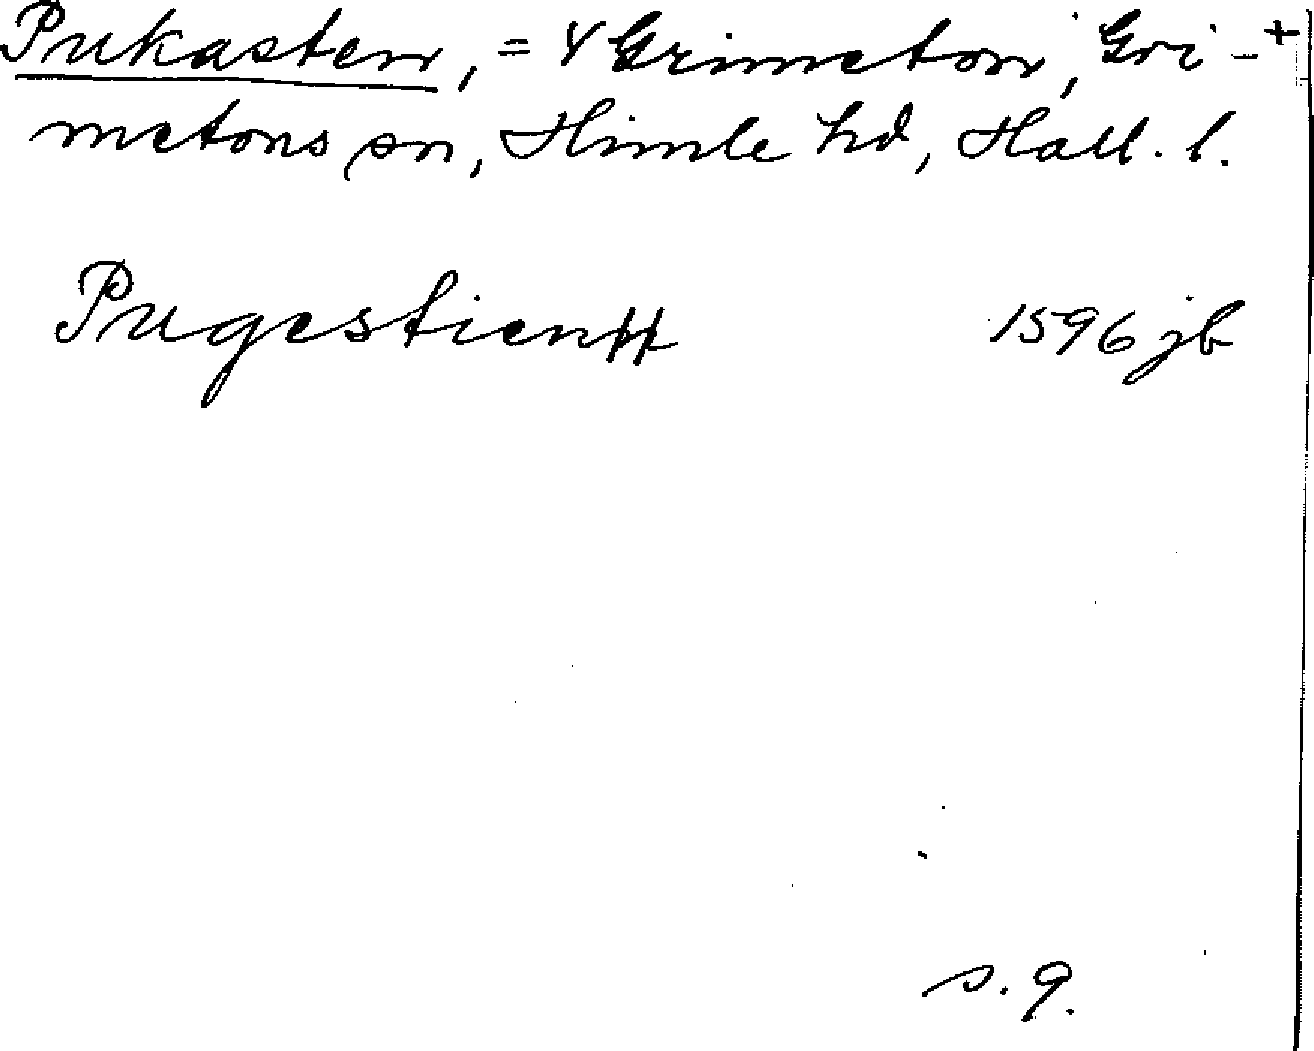 Pukasten, = 8 Grimeton, Gri- +
metons sn, Himle hd, Hall. l.
Pugestienn 1596 jb
s. 9.